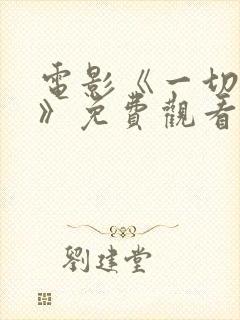 電影《一切
》免費觀看
劉建堂